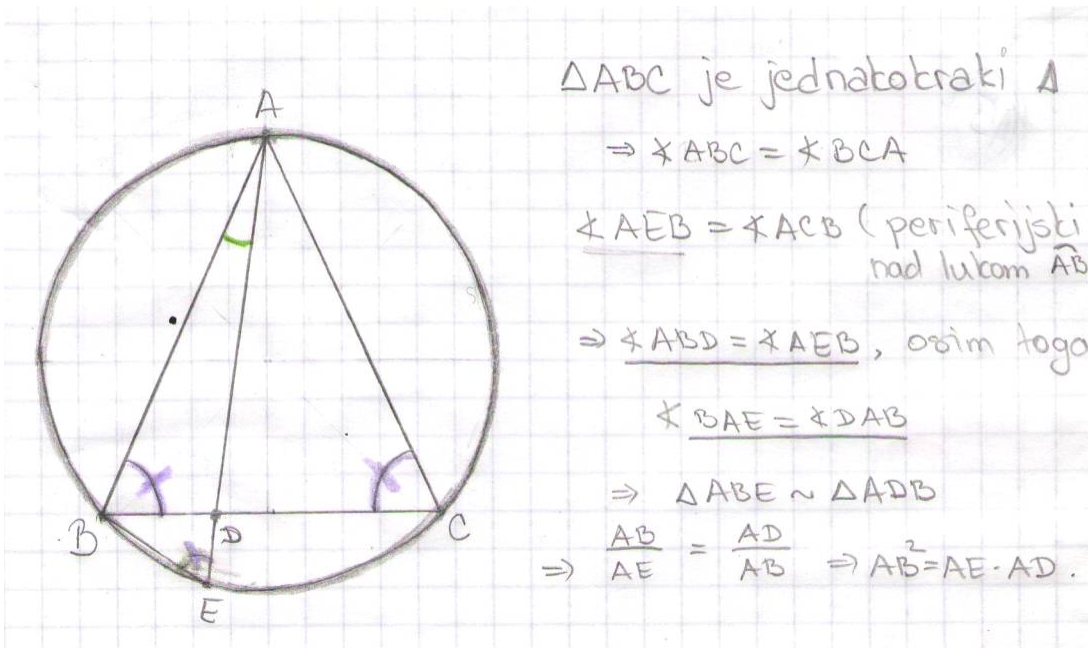 A
B
D
C
E
ΔABC je jednakokraki Δ
⇒ ∢ABC = ∢BCA
∢AEB = ∢ACB (periferijski
nad lukom AB
⇒ ∢ABD = ∢AEB, osim toga
∢BAE = ∢DAB
⇒ ΔABE ~ ΔADB
⇒ AB/AE = AD/AB ⇒ AB² = AE · AD.